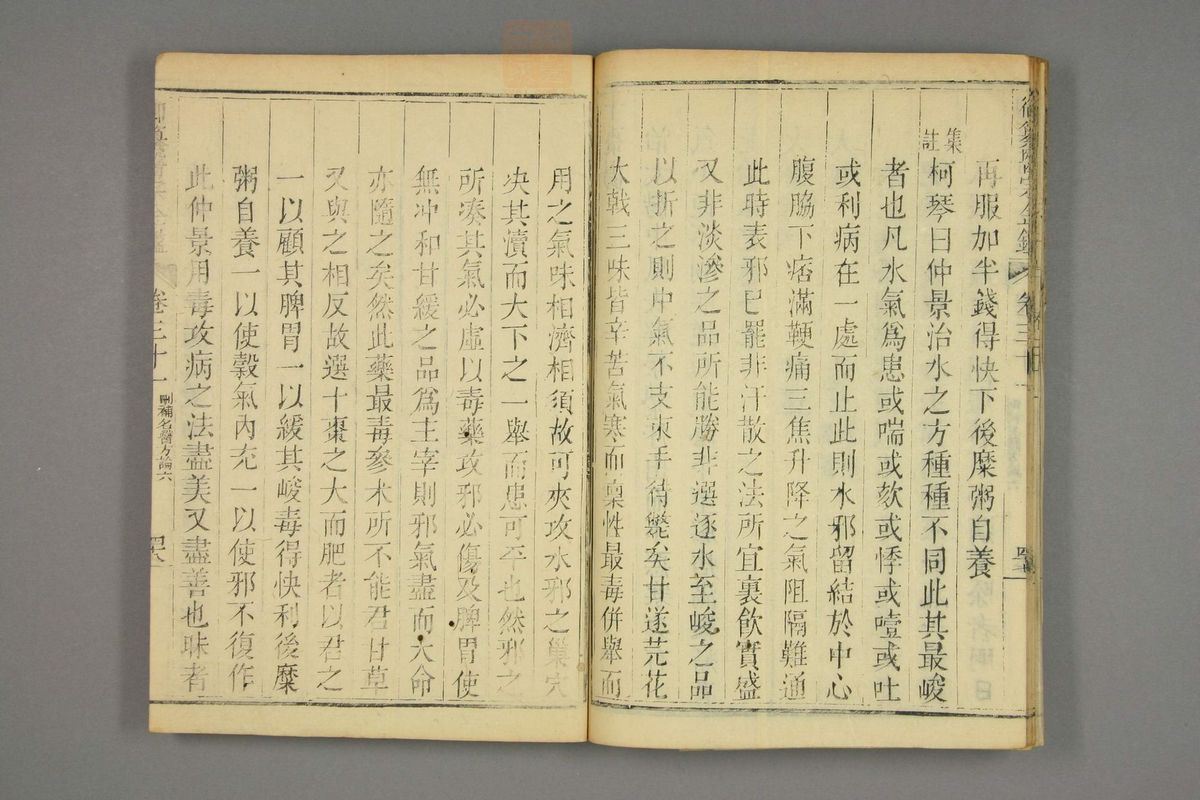 再服加半錢得快下後糜粥自養
集註
柯琴曰仲景治水之方種種不同此其最峻
者也凡水氣爲患或喘或欬或悸或噎或吐
或利病在一處而止此則水邪留結於中心
腹脇下痞滿鞕痛三焦升降之氣阻隔難通
此時表邪已罷非汗散之法所宜裏飲實盛
又非淡滲之品所能勝非選逐水至峻之品
以折之則中氣不支束手待斃矣甘遂芫花
大戟三味皆辛苦氣寒而稟性最毒併舉而
用之氣味相濟相須故可夾攻水邪之巢穴
决其瀆而大下之一舉而患可平也然邪之
所凑其氣必虛以毒藥攻邪必傷及脾胃使
無冲和甘緩之品爲主宰則邪氣盡而大命
亦隨之矣然此藥最毒參朮所不能君甘草
又與之相反故選十棗之大而肥者以君之
一以顧其脾胃一以緩其峻毒得快利後糜
粥自養一以使穀氣內充一以使邪不復作
此仲景用毒攻病之法盡美又盡善也昧者
卷三十一 刪補名醫方論六